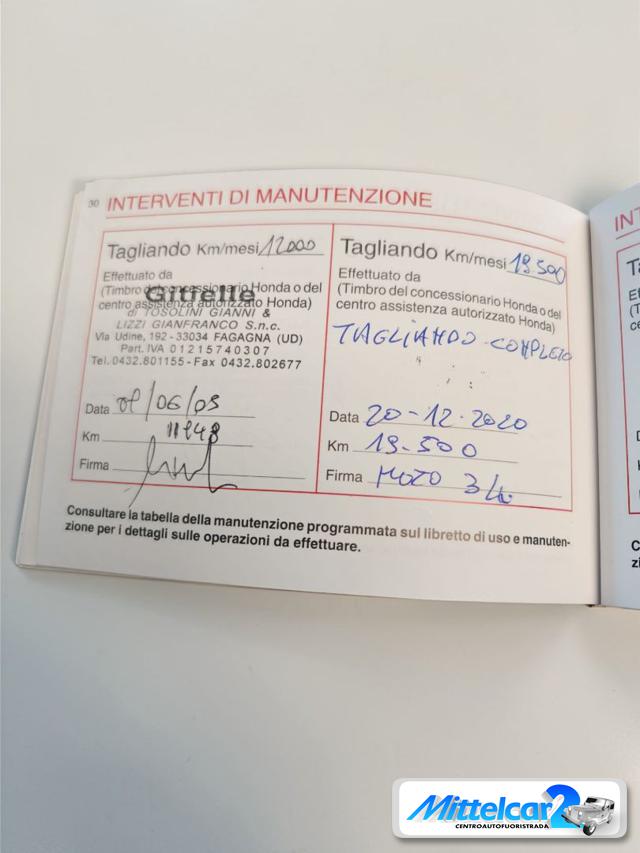 30 INTERVENTI DI MANUTENZIONE
Tagliando Km/mesi 12000
Effettuato da
(Timbro del concessionario Honda o del
centro assistenza autorizzato Honda)
Gitielle
di TOSOLINI GIANNI &
LIZZI GIANFRANCO S.n.c.
Via Udine, 192 - 33034 FAGAGNA (UD)
Part. IVA 01215740307
Tel. 0432.801155 - Fax 0432.802677
Data /06/09
Km
Firma
Tagliando Km/mesi 19500
Effettuato da
(Timbro del concessionario Honda o del
centro assistenza autorizzato Honda)
TAGLIANDO COMPLETO
Data 20-12-2020
Km 19-500
Firma MOTO
Consultare la tabella della manutenzione programmata sul libretto di uso e manuten-
zione per i dettagli sulle operazioni da effettuare.
INT
Ta
Mittelcar2
CENTROAUTOFUORISTRADA